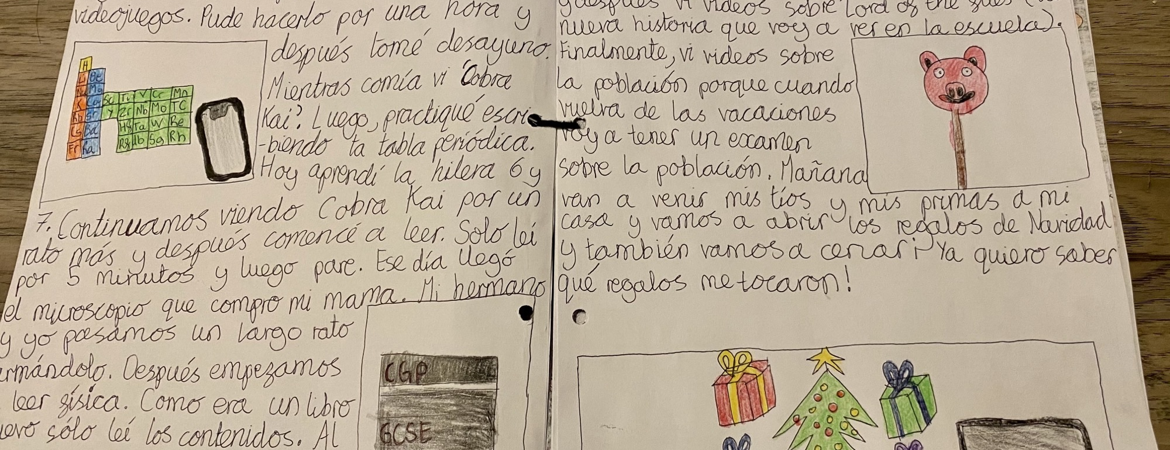 videojuegos. Pude hacerlo por una hora y
después tomé desayuno.
Mientras comía vi Cobra
Kai? Luego, practiqué escri
-biendo la tabla periódica.
Hoy aprendí la hilera 6 y
7. Continuamos viendo Cobra Kai por un
rato más y después comencé a leer. Solo leí
por 5 minutos y luego pare. Ese día llegó
el microscopio que compro mi mama. Mi hermano
y yo pasamos un largo rato
armándolo. Después empezamos
leer física. Como era un libro
uevo sólo leí los contenidos. Al
CGP
GCSE
y después vi videos sobre Lord of the flies
nueva historia que voy a ver en la escuela).
Finalmente, vi videos sobre
la población porque cuando
vuelva de las vacaciones
voy a tener un examen
sobre la población. Mañana
van a venir mis tíos y mis primas a mi
casa y vamos a abrir los regalos de Navidad
y también vamos a cenar. Ya quiero saber
qué regalos me tocaron!